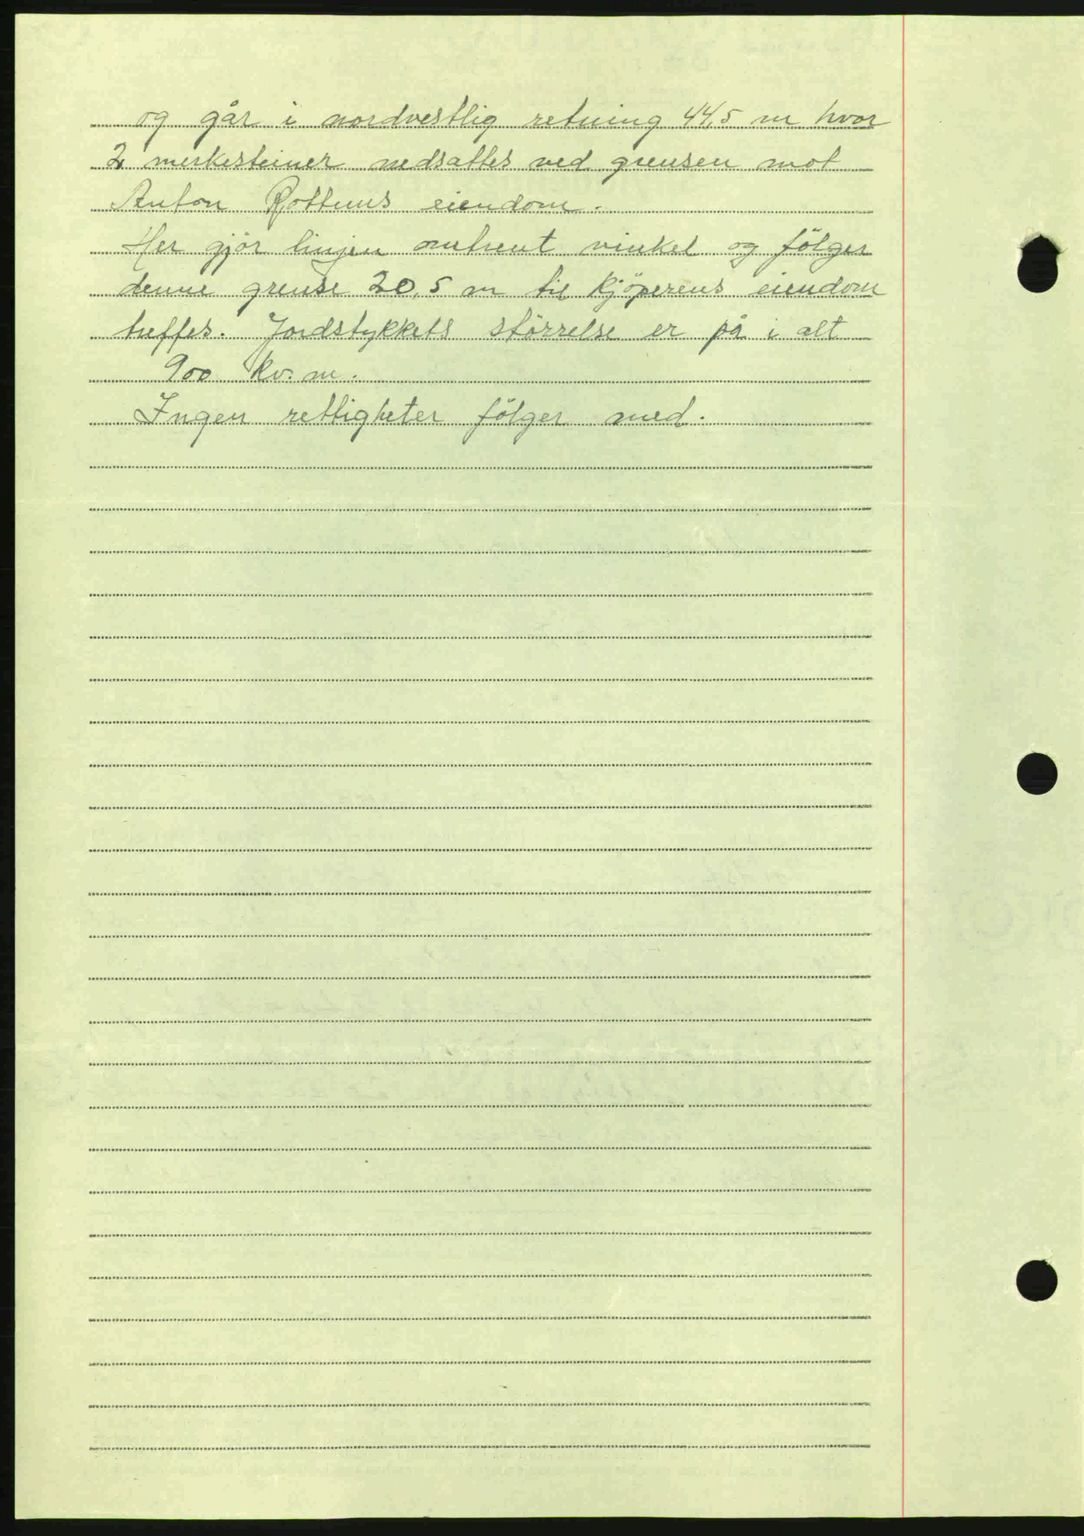 og går i nordvestlig retning 44,5 m hvor
2 merkesteiner nedsattes ved grensen mot
Anton Rottums eiendom.
Her gjör linjen omtrent vinkel og fölger
denne grense 20,5 m til kjöperens eiendom
treffes. Jordstykkets störrelse er på i alt
900 kv. m.
Ingen rettigheter fölger med.